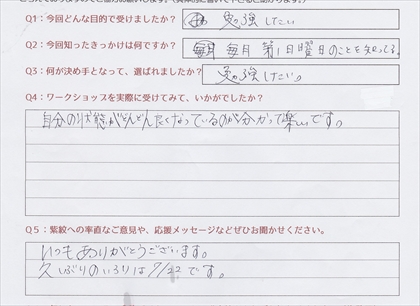 Q1：今回どんな目的で受けましたか？ 勉強したい
Q2：今回知ったきっかけは何ですか？ 毎月 第1日曜日のことを知ってる。
Q3：何が決め手となって、選ばれましたか？ 勉強したい。
Q4：ワークショップを実際に受けてみて、いかがでしたか？
自分の状態がどんどんよくなっているのが分かって楽しいです。
Q5：紫紋への率直なご意見や、応援メッセージなどぜひお聞かせください。
いつもありがとうございます。
久しぶりのいろりは 7/22 です。